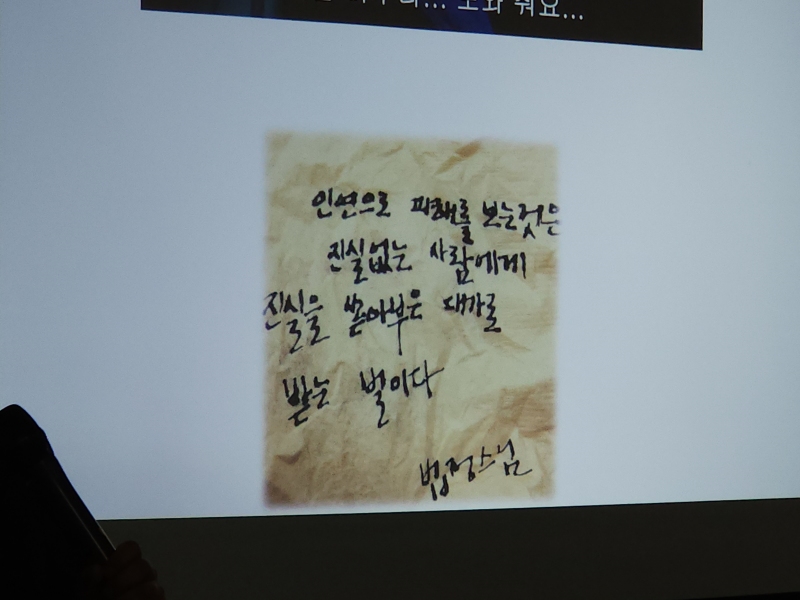 도와 줘요...
인연으로 피해를 보는것은
진실없는 사람에게
진실을 쏟아부은 대가로
받는 벌이다
법정스님